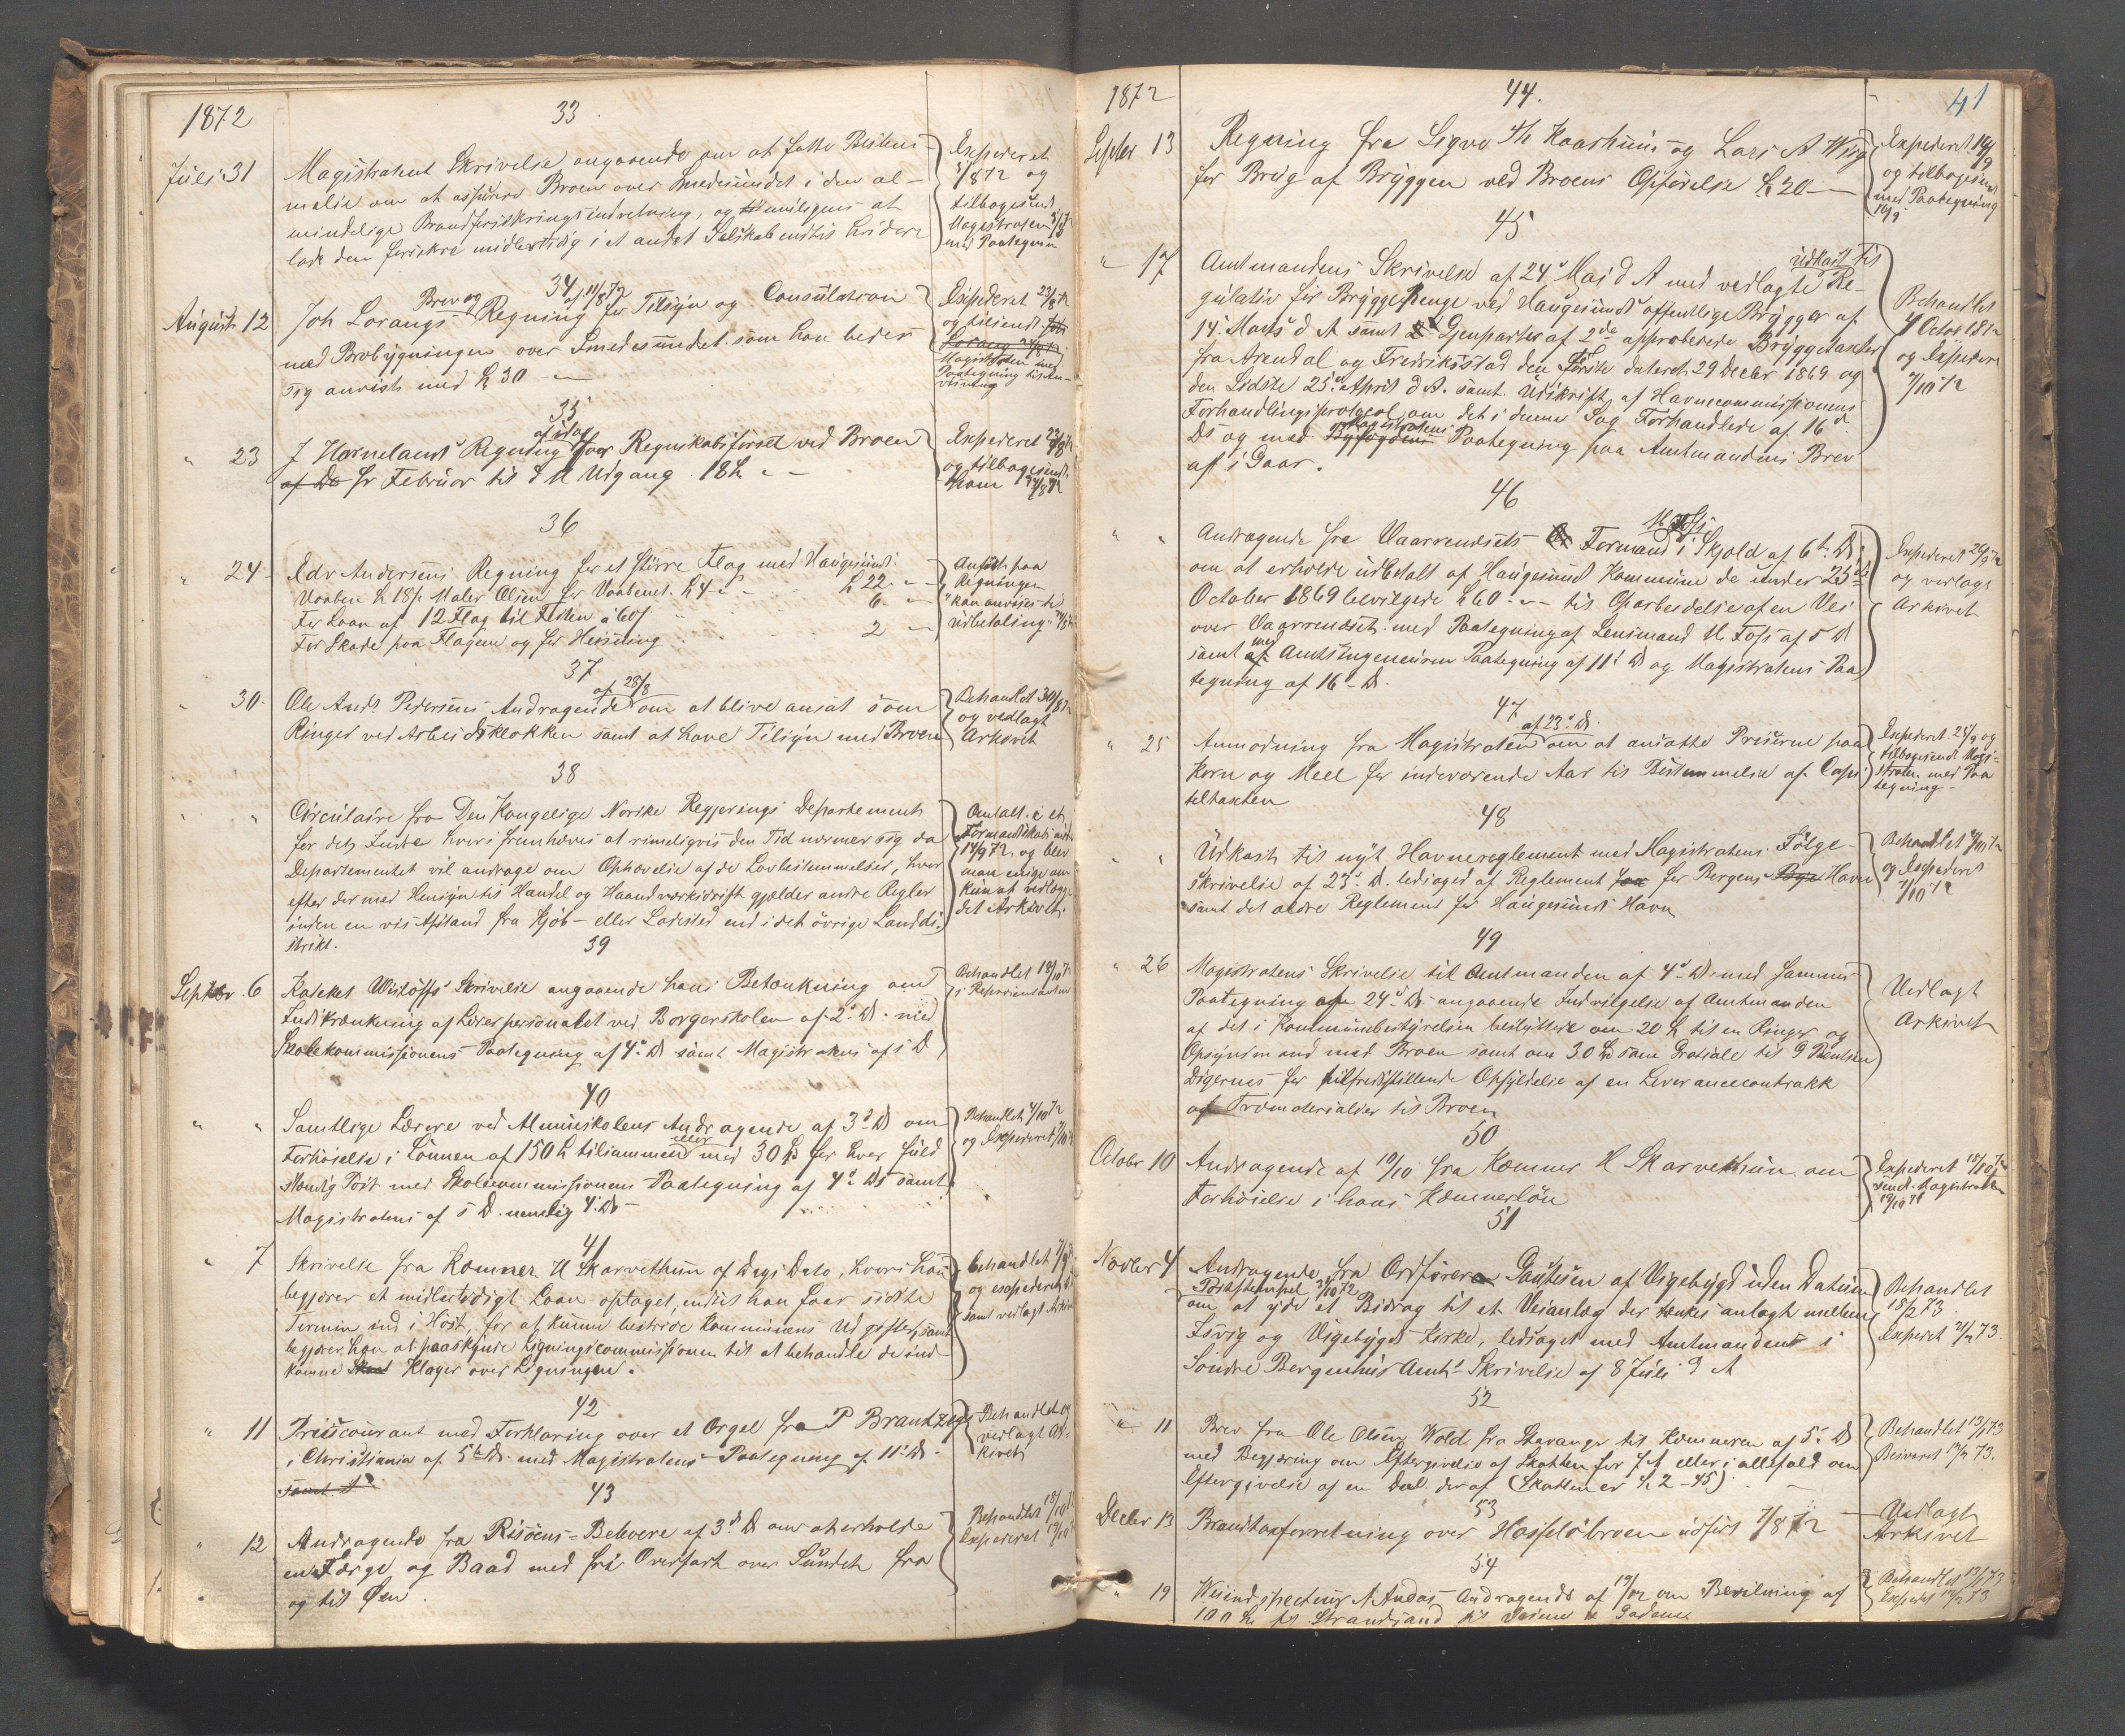 1872
33
Juli 31
Magistratens Skrivelse angaaende om at fatte Beslutt-
malse om at assurere Broen over Smedesundet i den al-
mindelige Brandforsikringsindretning, og muligens at
lade den forsikre midlertidig i et andet Selskab indtil videre
Expederet
1/8 72 og
tilbagesendt
Magistraten 3/8
med Paategning
34
August 12
Joh Lorangs Brev og Regning af 11/8 72 for Tilsyn og Consulation
med Brobygningen over Smedesundet som han beder
sig anvist med 30 -
Expederet 23/8 72
og tilsendt
Magistraten med
Paategning til An-
visning
35
" 23
J Hornelands Regning af idag for Regnskabsførsel ved Broen
af Do for Februar til d M Udgang. 18
Expederet 23/8 72
og tilbagesendt
ham 24/8 72
36
" 24
Edv Andersens Regning for et større Flag med Haugesunds
Vaaben 18, Maler Olsen for Vaabenet 4 - 22 "
For Laan af 12 Flag til Festen a 60 6 "
For Skade paa Flagene og for Heisning 2 "
Anført paa
Regningen
"kan anvises til
udbetaling"
37
" 30
Ole Andr. Pedersens Andragende af 28/8 om at blive ansat som
Ringer ved Arbeidsklokken samt at have Tilsyn med Broen
Behandlet 30/8 72
og vedlagt
Arkivet
38
" "
Circulaire fra Den Kongelige Norske Regjerings Departement
for det Indre hvori fremhæves at rimeligvis den Tid nærmer sig da
Departementet vil andrage om Ophævelse af de Lovbestemmelser, hvor
efter der med Hensyn til Handel og Haandværksdrift gjælder andre Regler
inden en vis Afstand fra Kjøb- eller Ladested end i det øvrige Landdi-
strikt.
Omtalt i et
Formandskabsmøde
14/9 72, og blev
man enige om
kun at vedlægge
det Arkivet.
39
Septbr 6
Katekets Wisløffs Skrivelse angaaende hans Betænkning om
Indskrænkning af Lærerpersonalet ved Borgerskolen af 2. D. med
Skolekommissionens Paategning af 4. D samt Magistratens af s D
Behandlet 18/10 72
i Repræsentantm
40
" "
Samtlige Lærere ved Almueskolens Andragende af 3. D om
Forhøielse i Lønnen af 150 tilsammen eller med 30 for hver fuld
stændig Post med Skolecommissionens Paategning af 4. Ds samt
Magistratens af s D. nemlig 4. D -
Behandlet 4/10 72
og Expederet 7/10 72
41
" 7
Skrivelse fra Kæmner H Skarvethun af Dags Dato, hvori han
begjærer et midlertidigt Laan optaget, indtil han faar sidste
Termin ind i Høst, for at kunne bestride Kommunens Udgifter, samt
begjærer han at paaskynde Ligningscommissionen til at behandle de ind-
komne Skat Klager over Ligningen.
behandlet 7/9
og expederet
samt vedlagt Arkivet
42
" 11
Priiscourant med Forklaring over et Orgel fra P Brantzeg
i Christiania af 5te D. med Magistratens Paategning af 11. D.
samt A
Behandlet og
vedlagt Ar-
kivet
43
" 12
Andragende fra Risøens Beboere af 3. D om at erholde
en Færge og Baad med fri Overfart over Sundet fra
og til Øen.
Behandlet 18/10 72
Expederet 19/10 72
1872
44.
41
Septbr 13
Regning fra Sigvo Th Kaarhuus og Lars A Wiig
for Brug af Bryggen ved Broens Opførelse 20 -
Expederet 14/9
og tilbagesendt
med Paategning
16/9
45
" 17
Amtmandens Skrivelse af 24. Mai d A med vedlagte Udkast til Re-
gulativ for Bryggepenge ved Haugesunds offentlige Brygger af
14. Marts d A samt Gjenparter af 2de approberede Bryggetaxter
fra Arendal og Fredriksstad den Første dateret 29 Decbr 1869 og
den Sidste 25de April d A. samt Udskrift af Havnecommissionens
Forhandlingsprotocol om det i denne Sag Forhandlede af 16d
Ds og med Byfogdens Magistratens Paategning paa Amtmandens Brev
af i Gaar.
Behandlet
4 Octob 1872
og Expederet
7/10 72
46
" "
Andragende fra Vaarrendsets Formand i Skjold af 6te D.
om at erholde udbetalt af Haugesund Kommune de under 25de
October 1869 bevilgede 60 - til Oparbeidelse af en Vei
over Vaarrendset med Paategning af Lensmand H. Foss af 5 D
samt af med Amtsingeneurens Paategning af 11. D og Magistratens Paa
tegning af 16. D.
Expederet 24/9 72
og vedlagt
Arkivet
47
" 25
Anmodning fra Magistraten af 23. D. om at ansætte Priserne paa
Korn og Meel for indeværende Aar til Bestemmelse af Capi-
teltaxten
Expederet 25/9 og
tilbagesendt Magi-
straten med Paa
tegning -
48
" "
Udkast til nyt Havnereglement med Magistratens Følge-
skrivelse af 23. D. ledsaget af Reglement for Bergens Havn
samt det ældre Reglement for Haugesunds Havn
Behandlet 4/10 72
og Expederet
7/10 72
49
" 26
Magistratens Skrivelse til Amtmanden af 4. D. med sammes
Paategning af 24. D. angaaende Indvilgelse af Amtmanden
af det i Kommunebestyrelsen besluttede om 20 til en Ringer og
Opsynsmand med Broen samt om 30 som Gratiale til G Bentsen
Digernes for tilfredsstillende Opfyldelse af en Leverancecontrakt
af Træmaterialier til Broen
Vedlagt
Arkivet
50
Octobr 10
Andragende af 10/10 fra Kæmner H Skarvethun om
Forhøielse i hans Kæmnerløn
Expederet 18/10 72
send. Magistraten
19/10 72
51
Novbr 4
Andragende fra Ordfører Gautesen af Vigebygd uden Datum
Poststempel 31/10 72
om at yde et Bidrag til et Veianlæg der tænkes anlagt mellem
Isvig og Vigebygds Kirke, ledsaget med Amtmanden i
Søndre Bergenhus Amts Skrivelse af 8 Juli d A
Behandlet
18/2 73
Expederet 21/2 73.
52
" 11
Brev fra Ole Olsen Wold fra Stavanger til Kæmneren af 5. D
med Begjæring om Eftergivelse af Skatten for d A eller i alfald om
Eftergivelse af en Deel deraf (Skatten er 2 - 45)
Behandlet 13/1 73
Besvaret 14/2 73.
53
Decbr 13
Brandtaxforretning over Hasseløbroen udført 7/8 72
Vedlagt
Arkivet
54
" 19
Veiinspecteur N Andas Andragende af 19/12 om Bevilgning af
100 for Strandsand til Veiene & Gaderne
Behandlet 13/1 73
Exped 14/2 73